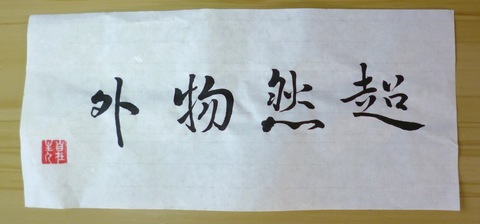 超然物外